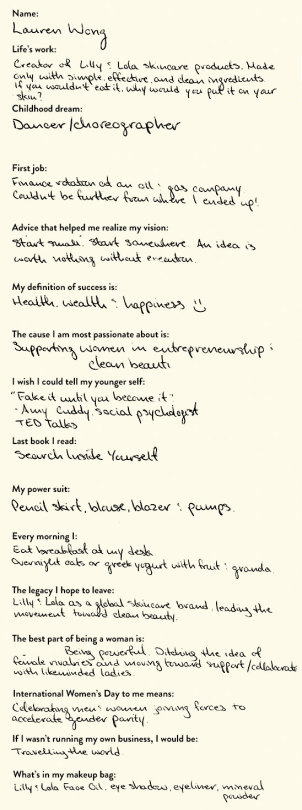 Name:
Lauren Wong
Life's work:
Creator of Lilly & Lola skincare products. Made
only with simple, effective, and clean ingredients.
If you wouldn't eat it, why would you put it on your
skin?
Childhood dream:
Dancer/choreographer
First job:
Finance rotation at an oil & gas company
Couldn't be further from where I ended up!
Advice that helped me realize my vision:
Start small. Start somewhere. An idea is
worth nothing without execution.
My definition of success is:
Health, wealth & happiness ☺
The cause I am most passionate about is:
Supporting women in entrepreneurship &
clean beauty
I wish I could tell my younger self:
"Fake it until you become it"
- Amy Cuddy, social psychologist
TED Talks
Last book I read:
Search Inside Yourself
My power suit:
Pencil skirt, blouse, blazer & pumps.
Every morning I:
Eat breakfast at my desk
Overnight oats or greek yogurt with fruit & granola.
The legacy I hope to leave:
Lilly & Lola as a global skincare brand, leading the
movement toward clean beauty.
The best part of being a woman is:
Being powerful. Ditching the idea of
female rivalries and moving toward support/collaborate
with likeminded ladies
International Women's Day to me means:
Celebrating men & women joining forces to
accelerate gender parity.
If I wasn't running my own business, I would be:
Travelling the world.
What's in my makeup bag:
Lilly & Lola Face Oil, eye shadow, eyeliner, mineral
powder